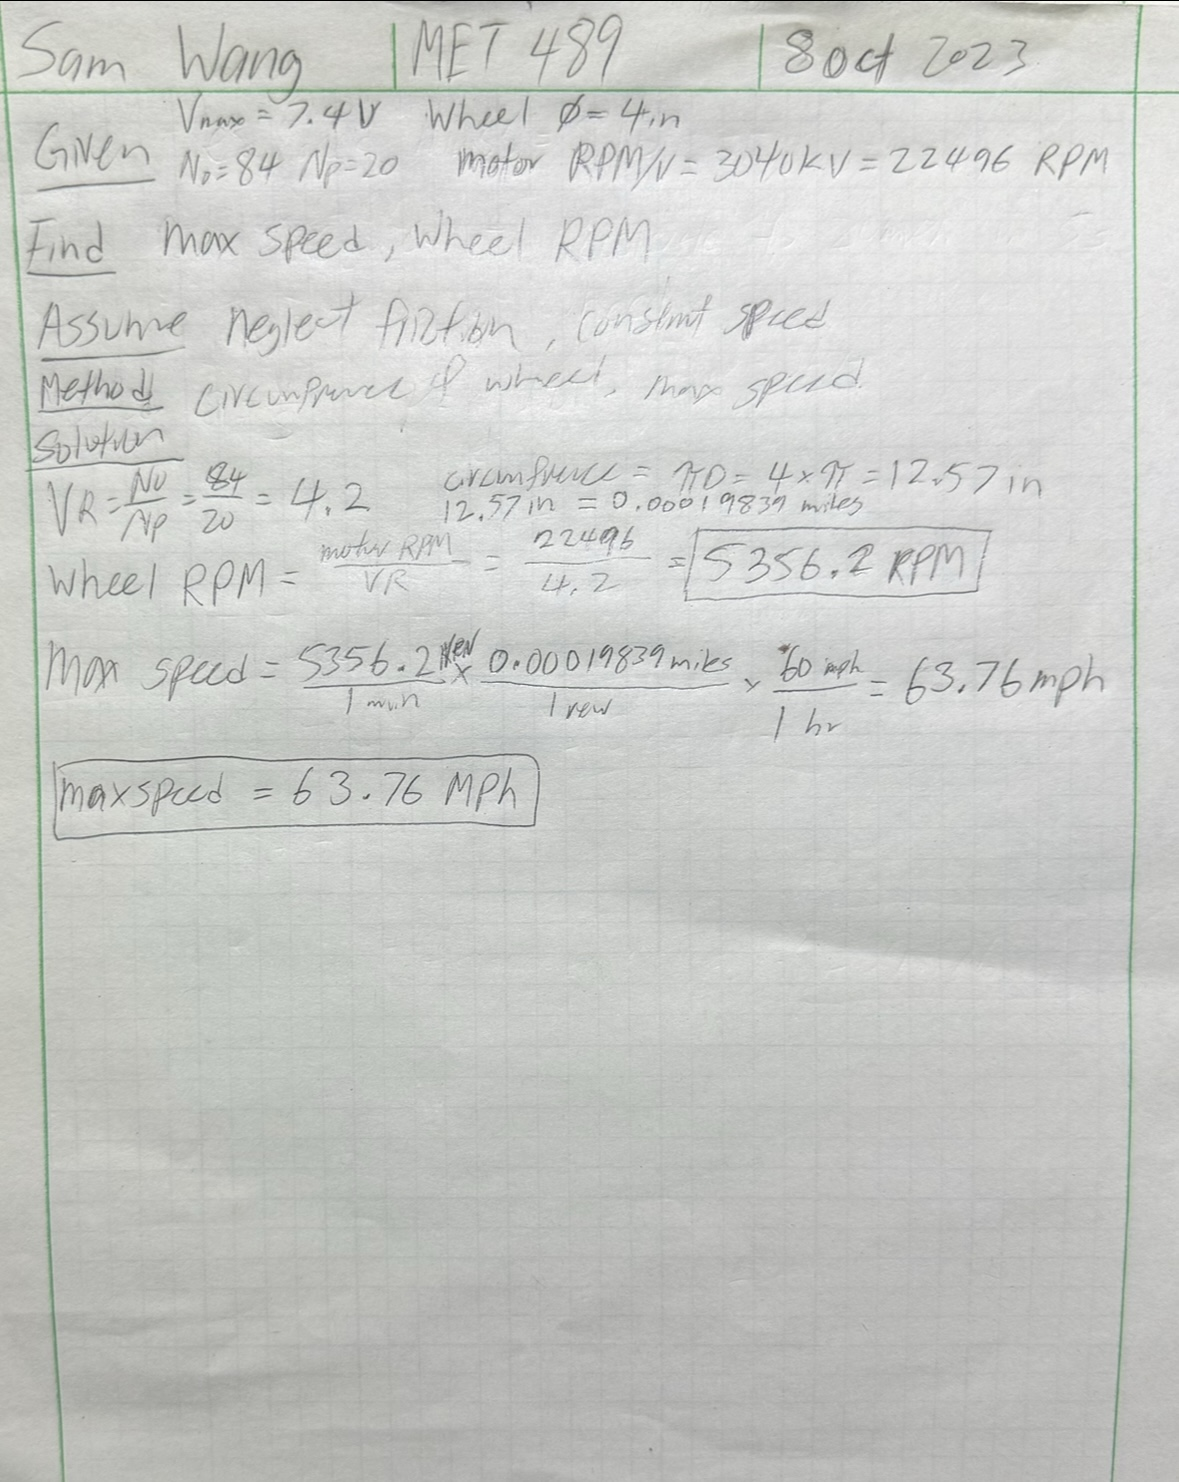 Sam Wang | MET 489 | 8 Oct 2023
Vmax = 7.4V Wheel Ø = 4in
Given No=84 Np=20 motor RPM/V = 3040KV = 22496 RPM
Find max speed, Wheel RPM
Assume neglect friction, constant speed
Method circumfrence of wheel, max speed
Solution
VR = No/Np = 84/20 = 4.2 circumfrence = πD = 4 × π = 12.57 in
12.57 in = 0.00019839 miles
Wheel RPM = motor RPM/VR = 22496/4.2 = 5356.2 RPM
Max speed = 5356.2 rev/1 min × 0.00019839 miles/1 rev × 60 mph/1 hr = 63.76 mph
max speed = 63.76 MPh